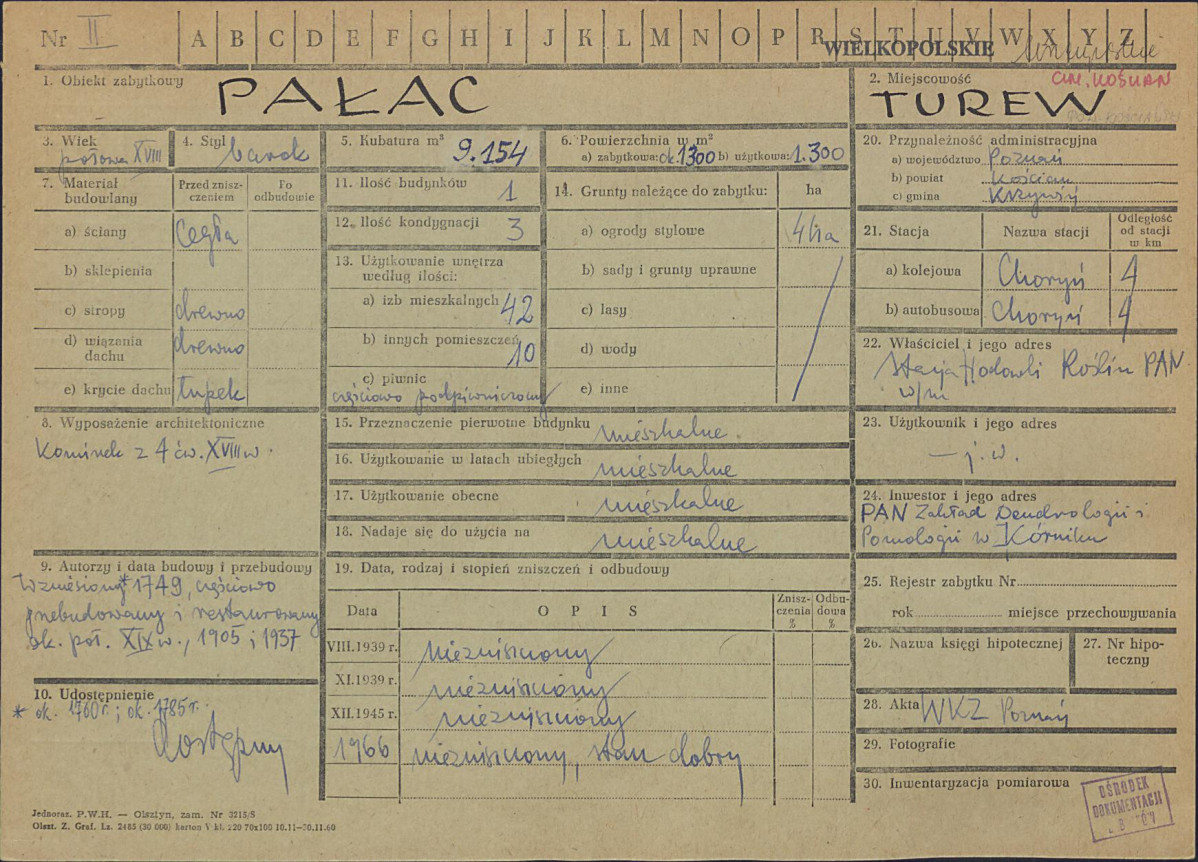 Nr II A B C D E F G H I J K L M N O P R S T U V W X Y Z
WIELKOPOLSKIE
1. Obiekt zabytkowy
PAŁAC
2. Miejscowość
GM. KOŚCIAN
TUREW
3. Wiek
połowa XVIII
4. Styl barok
5. Kubatura m³ 9.154
6. Powierzchnia w m²
a) zabytkowa: ok. 1300 b) użytkowa: 1.300
7. Materiał budowlany
Przed zniszczeniem
Po odbudowie
a) ściany cegła
b) sklepienia
c) stropy drewno
d) wiązania dachu drewno
e) krycie dachu łupek
8. Wyposażenie architektoniczne
Kominek z 4 ćw. XVIII w.
9. Autorzy i data budowy i przebudowy
Wzniesiony* 1749, częściowo
przebudowany i restaurowany
ok. poł. XIX w., 1905 i 1937
10. Udostępnienie
* ok. 1760 r.; ok. 1785 r.
dostępny
11. Ilość budynków 1
12. Ilość kondygnacji 3
13. Użytkowanie wnętrza
według ilości:
a) izb mieszkalnych 42
b) innych pomieszczeń 10
c) piwnic
częściowo podpiwniczony
14. Grunty należące do zabytku: ha
a) ogrody stylowe 4 ha
b) sady i grunty uprawne
c) lasy
d) wody
e) inne
15. Przeznaczenie pierwotne budynku mieszkalne.
16. Użytkowanie w latach ubiegłych mieszkalne
17. Użytkowanie obecne mieszkalne
18. Nadaje się do użycia na mieszkalne
19. Data, rodzaj i stopień zniszczeń i odbudowy
Data
OPIS
Zniszczenia %
Odbudowa %
VIII.1939 r. niezniszczony
XI.1939 r. niezniszczony
XII.1945 r. niezniszczony
1966 niezniszczony, stan dobry
20. Przynależność administracyjna
a) województwo Poznań
b) powiat Kościan
c) gmina Krzywiń
21. Stacja
Nazwa stacji
Odległość od stacji w km
a) kolejowa Choryń 4
b) autobusowa Choryń 4
22. Właściciel i jego adres
Stacja Hodowli Roślin PAN
w/m
23. Użytkownik i jego adres
— j.w.
24. Inwestor i jego adres
PAN Zakład Dendrologii i
Pomologii w Kórniku
25. Rejestr zabytku Nr
rok miejsce przechowywania
26. Nazwa księgi hipotecznej
27. Nr hipoteczny
28. Akta WKZ Poznań
29. Fotografie
30. Inwentaryzacja pomiarowa
OŚRODEK
DOKUMENTACJI
Jednoraz. P.W.H. — Olsztyn, zam. Nr 3215/S
Olszt. Z. Graf. Lz. 2485 (30 000) karton V kl. 220 70x100 10.11—30.11.60